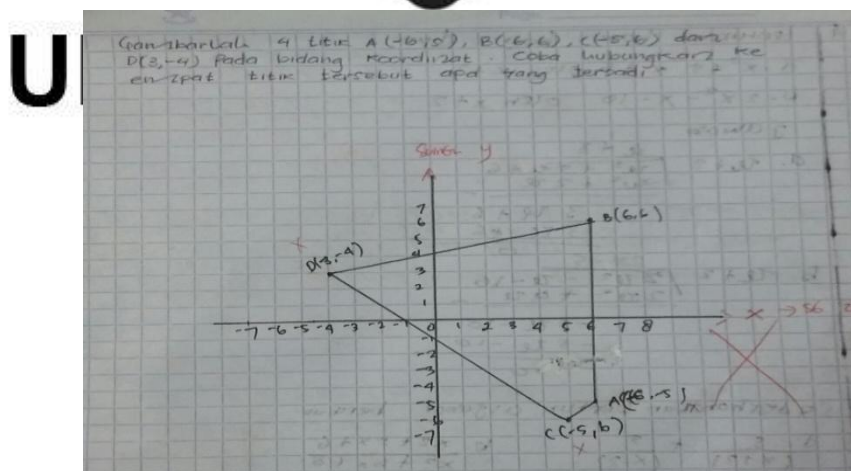 U
Gambarlah 4 titik A(-6,5), B(-6,6), C(-5,6) dan
D(3,-4) Pada bidang koordinat. Coba hubungkan ke
empat titik tersebut apa yang terjadi
Sumbu y
7
6
5
4
3
2
1
B(6,6)
D(-3,-4)
-7 -6 -5 -4 -3 -2 -1 0 1 2 3 4 5 6 7 8
x
-1
-2
-3
-4
-5
-6
-7
A(6,-5)
C(-5,6)